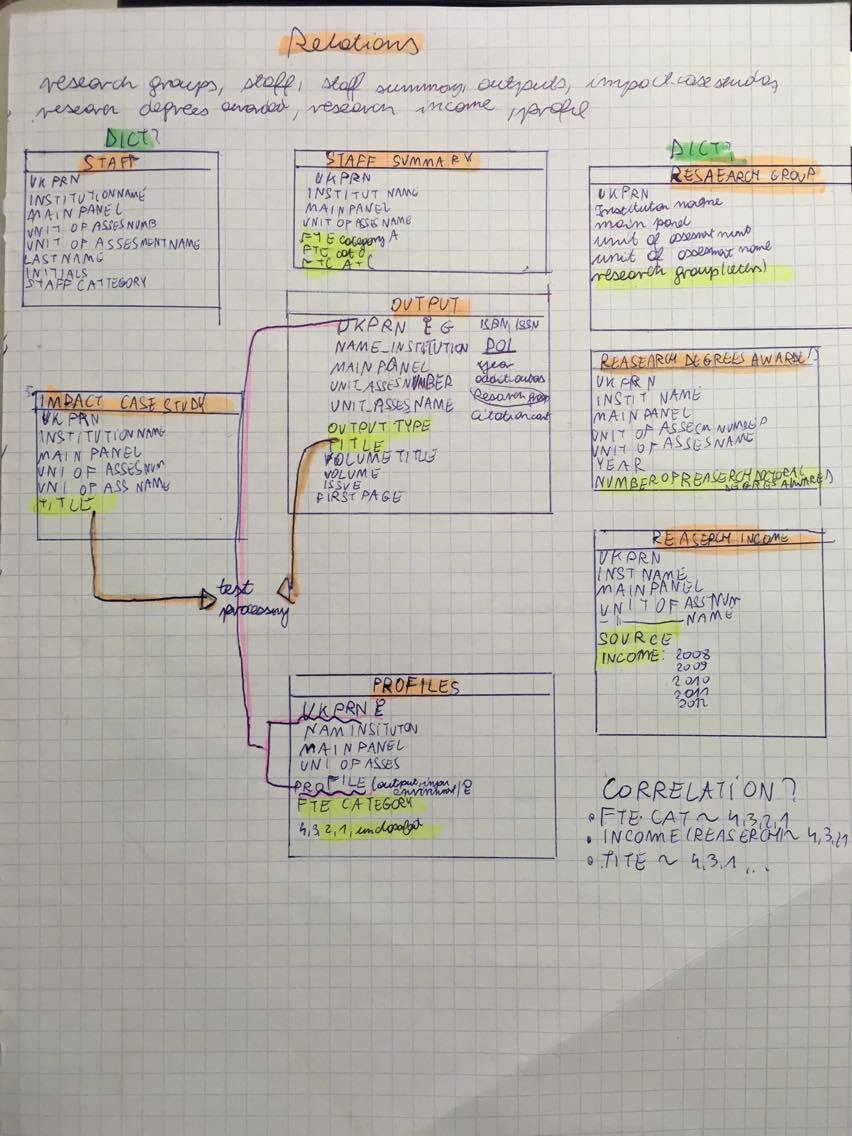 Relations
research groups, staff, staff summary, outputs, impact case studies,
research degrees awarded, research income, profil
DICT?
STAFF
UKPRN
INSTITUTIONNAME
MAIN PANEL
UNIT OF ASSESNUMB
UNIT OF ASSESMENTNAME
LASTNAME
INITIALS
STAFF CATTEGORY
STAFF SUMMARY
UKPRN
INSTITUT NAME
MAIN PANEL
UNIT OF ASSES NAME
FTE category A
FTE cat
DICT?
RESAEARCH GROUP
UKPRN
Institution name
main panel
unit of assesmat numb
unit of assesmat name
research group
OUTPUT
UKPRN
NAME_INSTITUTION
MAIN PANEL
UNIT_ASSES NUMBER
UNIT_ASSES NAME
OUTPUT TYPE
TITLE
VOLUMETITLE
VOLUME
ISSUE
FIRST PAGE
ISBN, ISSN
DOI
year
Research group
IMPACT CASE STUDY
UKPRN
INSTITUTIONNAME
MAIN PANEL
UNI OF ASSESNUM
UNI OF ASS NAME
TITLE
REASEARCH DEGREES AWARDED
UKPRN
INSTIT NAME
MAINPANEL
UNIT OF ASSECM NUMBER
UNIT OF ASSESNAME
YEAR
NUMBER OF REASERCH DOCTORAL
DEGREES AWARED
REASERCH INCOME
UKPRN
INST NAME
MAINPANEL
UNIT OF ASST NUM
NAME
SOURCE
INCOME: 2008
2009
2010
2011
2012
text
processing
PROFILES
UKPRN
NAM INSITUTON
MAIN PANEL
UNI OF ASSES
PROFILE (output, impa
FTE CATEGORY
4,3,2,1, unclassified
CORRELATION?
• FTE CAT ~ 4,3,2,1
• INCOME (REASERCH) ~ 4,3,21
• TITE ~ 4,3,1 ...